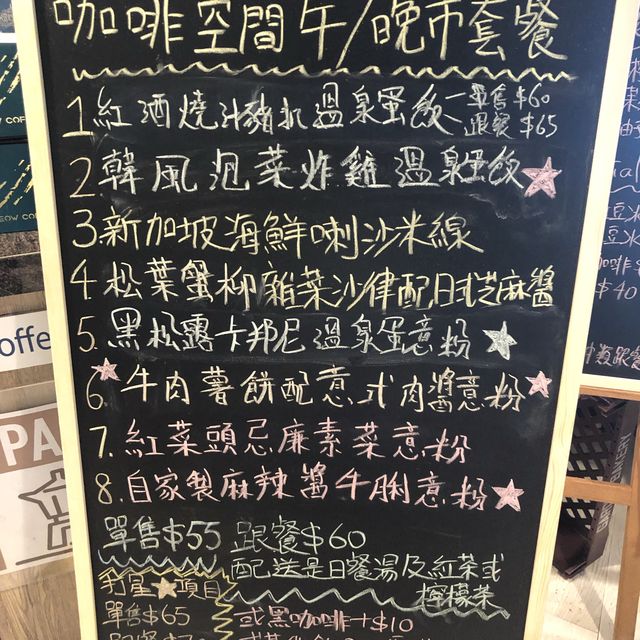 咖啡空間午/晚市套餐
1 紅酒燒汁豬扒溫泉蛋飯 單售$60
跟餐$65
2. 韓風泡菜炸雞溫泉蛋飯
3. 新加坡海鮮喇沙米線
4. 松葉蟹柳雜菜沙律配日式芝麻醬
5. 黑松露卡邦尼溫泉蛋意粉
6. 牛肉薯餅配意式肉醬意粉
7. 紅菜頭忌廉素菜意粉
8. 自家製麻辣醬牛脷意粉
單售$55 跟餐$60
配送是日餐湯及紅茶或
檸檬茶
打星★項目
單售$65
或黑咖啡+$10
offee
PA
$40